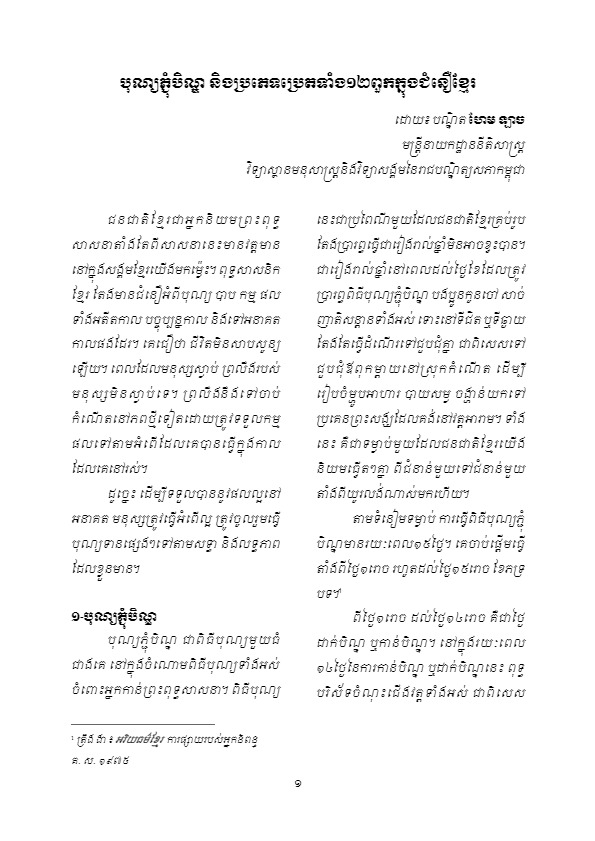 បុណ្យភ្ជុំបិណ្ឌ និងប្រភេទប្រេតទាំង១២ពួកក្នុងជំនឿខ្មែរ
ដោយ៖ បណ្ឌិត ហែម ឡាច
មន្ត្រីនាយកដ្ឋាននីតិសាស្ត្រ
វិទ្យាស្ថានមនុស្សសាស្ត្រនិងវិទ្យាសង្គមនៃរាជបណ្ឌិត្យសភាកម្ពុជា
ជនជាតិខ្មែរជាអ្នកនិយមព្រះពុទ្ធ
សាសនាតាំងតែពីសាសនានេះមានវត្តមាន
នៅក្នុងសង្គមខ្មែរយើងមកម៉្លេះ។ ពុទ្ធសាសនិក
ខ្មែរ តែងមានជំនឿអំពីបុណ្យ បាប កម្ម ផល
ទាំងអតីតកាល បច្ចុប្បន្នកាល និងទៅអនាគត
កាលផងដែរ។ គេជឿថា ជីវិតមិនសាបសូន្យ
ឡើយ។ ពេលដែលមនុស្សស្លាប់ ព្រលឹងរបស់
មនុស្សមិនស្លាប់ទេ។ ព្រលឹងនឹងទៅចាប់
កំណើតនៅភពថ្មីទៀតដោយត្រូវទទួលកម្ម
ផលទៅតាមអំពើដែលគេបានធ្វើក្នុងកាល
ដែលគេនៅរស់។
ដូច្នេះ ដើម្បីទទួលបាននូវផលល្អនៅ
អនាគត មនុស្សត្រូវធ្វើអំពើល្អ ត្រូវចូលរួមធ្វើ
បុណ្យទានផ្សេងៗទៅតាមសទ្ធា និងលទ្ធភាព
ដែលខ្លួនមាន។
១-បុណ្យភ្ជុំបិណ្ឌ
បុណ្យភ្ជុំបិណ្ឌ ជាពិធីបុណ្យមួយធំ
ជាងគេ នៅក្នុងចំណោមពិធីបុណ្យទាំងអស់
ចំពោះអ្នកកាន់ព្រះពុទ្ធសាសនា។ ពិធីបុណ្យ
នេះជាប្រពៃណីមួយដែលជនជាតិខ្មែរគ្រប់រូប
តែងប្រារព្ធធ្វើជារៀងរាល់ឆ្នាំមិនអាចខ្វះបាន។
ជារៀងរាល់ឆ្នាំនៅពេលដល់ថ្ងៃខែដែលត្រូវ
ប្រារព្ធពិធីបុណ្យភ្ជុំបិណ្ឌ បងប្អូនកូនចៅ សាច់
ញាតិសន្តានទាំងអស់ ទោះនៅទីជិត ឬទីឆ្ងាយ
តែងតែធ្វើដំណើរទៅជួបជុំគ្នា ជាពិសេសទៅ
ជួបជុំឪពុកម្តាយនៅស្រុកកំណើត ដើម្បី
រៀបចំម្ហូបអាហារ បាយសម្ល ចង្ហាន់យកទៅ
ប្រគេនព្រះសង្ឃដែលគង់នៅវត្តអារាម។ ទាំង
នេះ គឺជាទម្លាប់មួយដែលជនជាតិខ្មែរយើង
និយមធ្វើតៗគ្នា ពីជំនាន់មួយទៅជំនាន់មួយ
តាំងពីយូរលង់ណាស់មកហើយ។
តាមទំនៀមទម្លាប់ ការធ្វើពិធីបុណ្យភ្ជុំ
បិណ្ឌមានរយៈពេល១៥ថ្ងៃ។ គេចាប់ផ្តើមធ្វើ
តាំងពីថ្ងៃ១រោច រហូតដល់ថ្ងៃ១៥រោច ខែភទ្រ
បទ។¹
ពីថ្ងៃ១រោច ដល់ថ្ងៃ១៤រោច គឺជាថ្ងៃ
ដាក់បិណ្ឌ ឬកាន់បិណ្ឌ។ នៅក្នុងរយៈពេល
១៤ថ្ងៃនៃការកាន់បិណ្ឌ ឬដាក់បិណ្ឌនេះ ពុទ្ធ
បរិស័ទចំណុះជើងវត្តទាំងអស់ ជាពិសេស
¹ ត្រឹង ងា ៖ អរិយធម៌ខ្មែរ ការផ្សាយរបស់អ្នកនិពន្ធ
គ. ស. ១៩៧៥
១